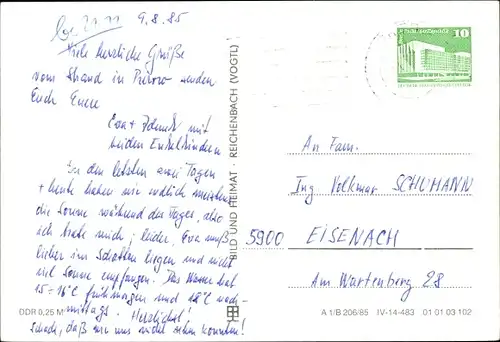 9.8.85
Viele herzliche Grüße
vom Strand in Prerow senden
Euch Eure
Eva + Zdenek mit
beiden Enkelkindern
In den letzten zwei Tagen
+ heute haben wir endlich meistens
die Sonne während des Tages, also
ich brate mich; leider, Eva muß
lieber im Schatten liegen und nicht
viel Sonne empfangen. Das Wasser hat
15-16°C frühmorgens und 18°C nach-
mittags. Herzlichst!
Schade, daß wir uns nicht sehen konnten!
DDR 0,25 M
BILD UND HEIMAT · REICHENBACH (VOGTL)
10
An Fam.
Ing Volkmar SCHUMANN
5900 EISENACH
Am Wartenberg 28
A 1/B 206/85 IV-14-483 01 01 03 102